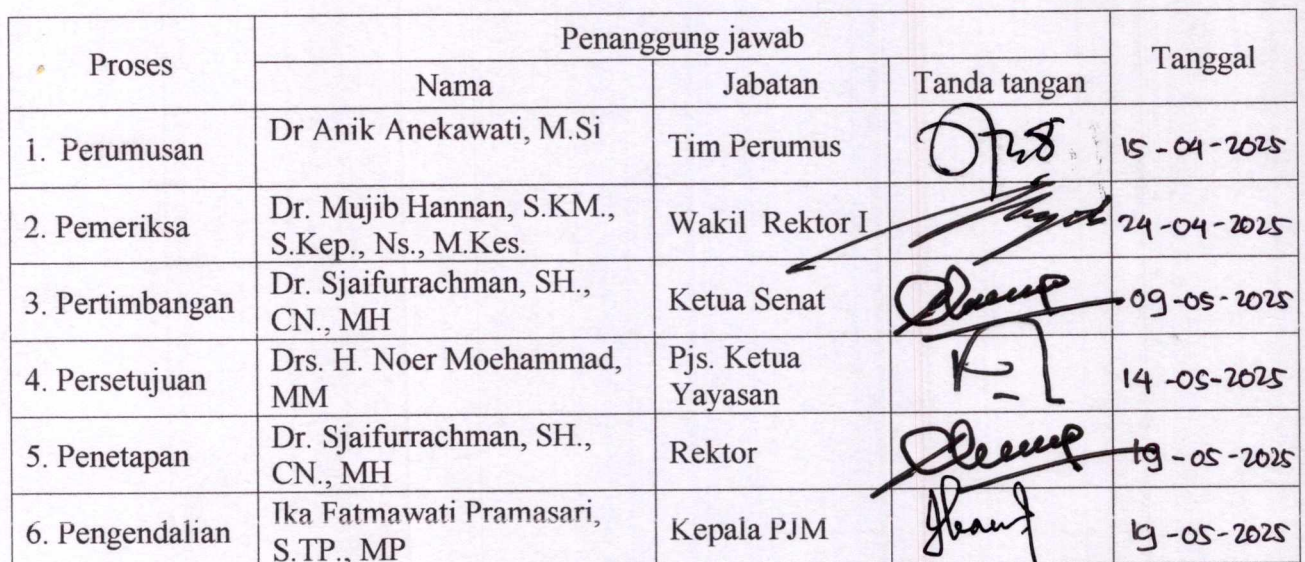 Proses
Penanggung jawab
Tanggal
Nama
Jabatan
Tanda tangan
1. Perumusan
Dr Anik Anekawati, M.Si
Tim Perumus
15-04-2025
2. Pemeriksa
Dr. Mujib Hannan, S.KM.,
S.Kep., Ns., M.Kes.
Wakil Rektor I
24-04-2025
3. Pertimbangan
Dr. Sjaifurrachman, SH.,
CN., MH
Ketua Senat
09-05-2025
4. Persetujuan
Drs. H. Noer Moehammad,
MM
Pjs. Ketua
Yayasan
14-05-2025
5. Penetapan
Dr. Sjaifurrachman, SH.,
CN., MH
Rektor
19-05-2025
6. Pengendalian
Ika Fatmawati Pramasari,
S.TP., MP
Kepala PJM
19-05-2025